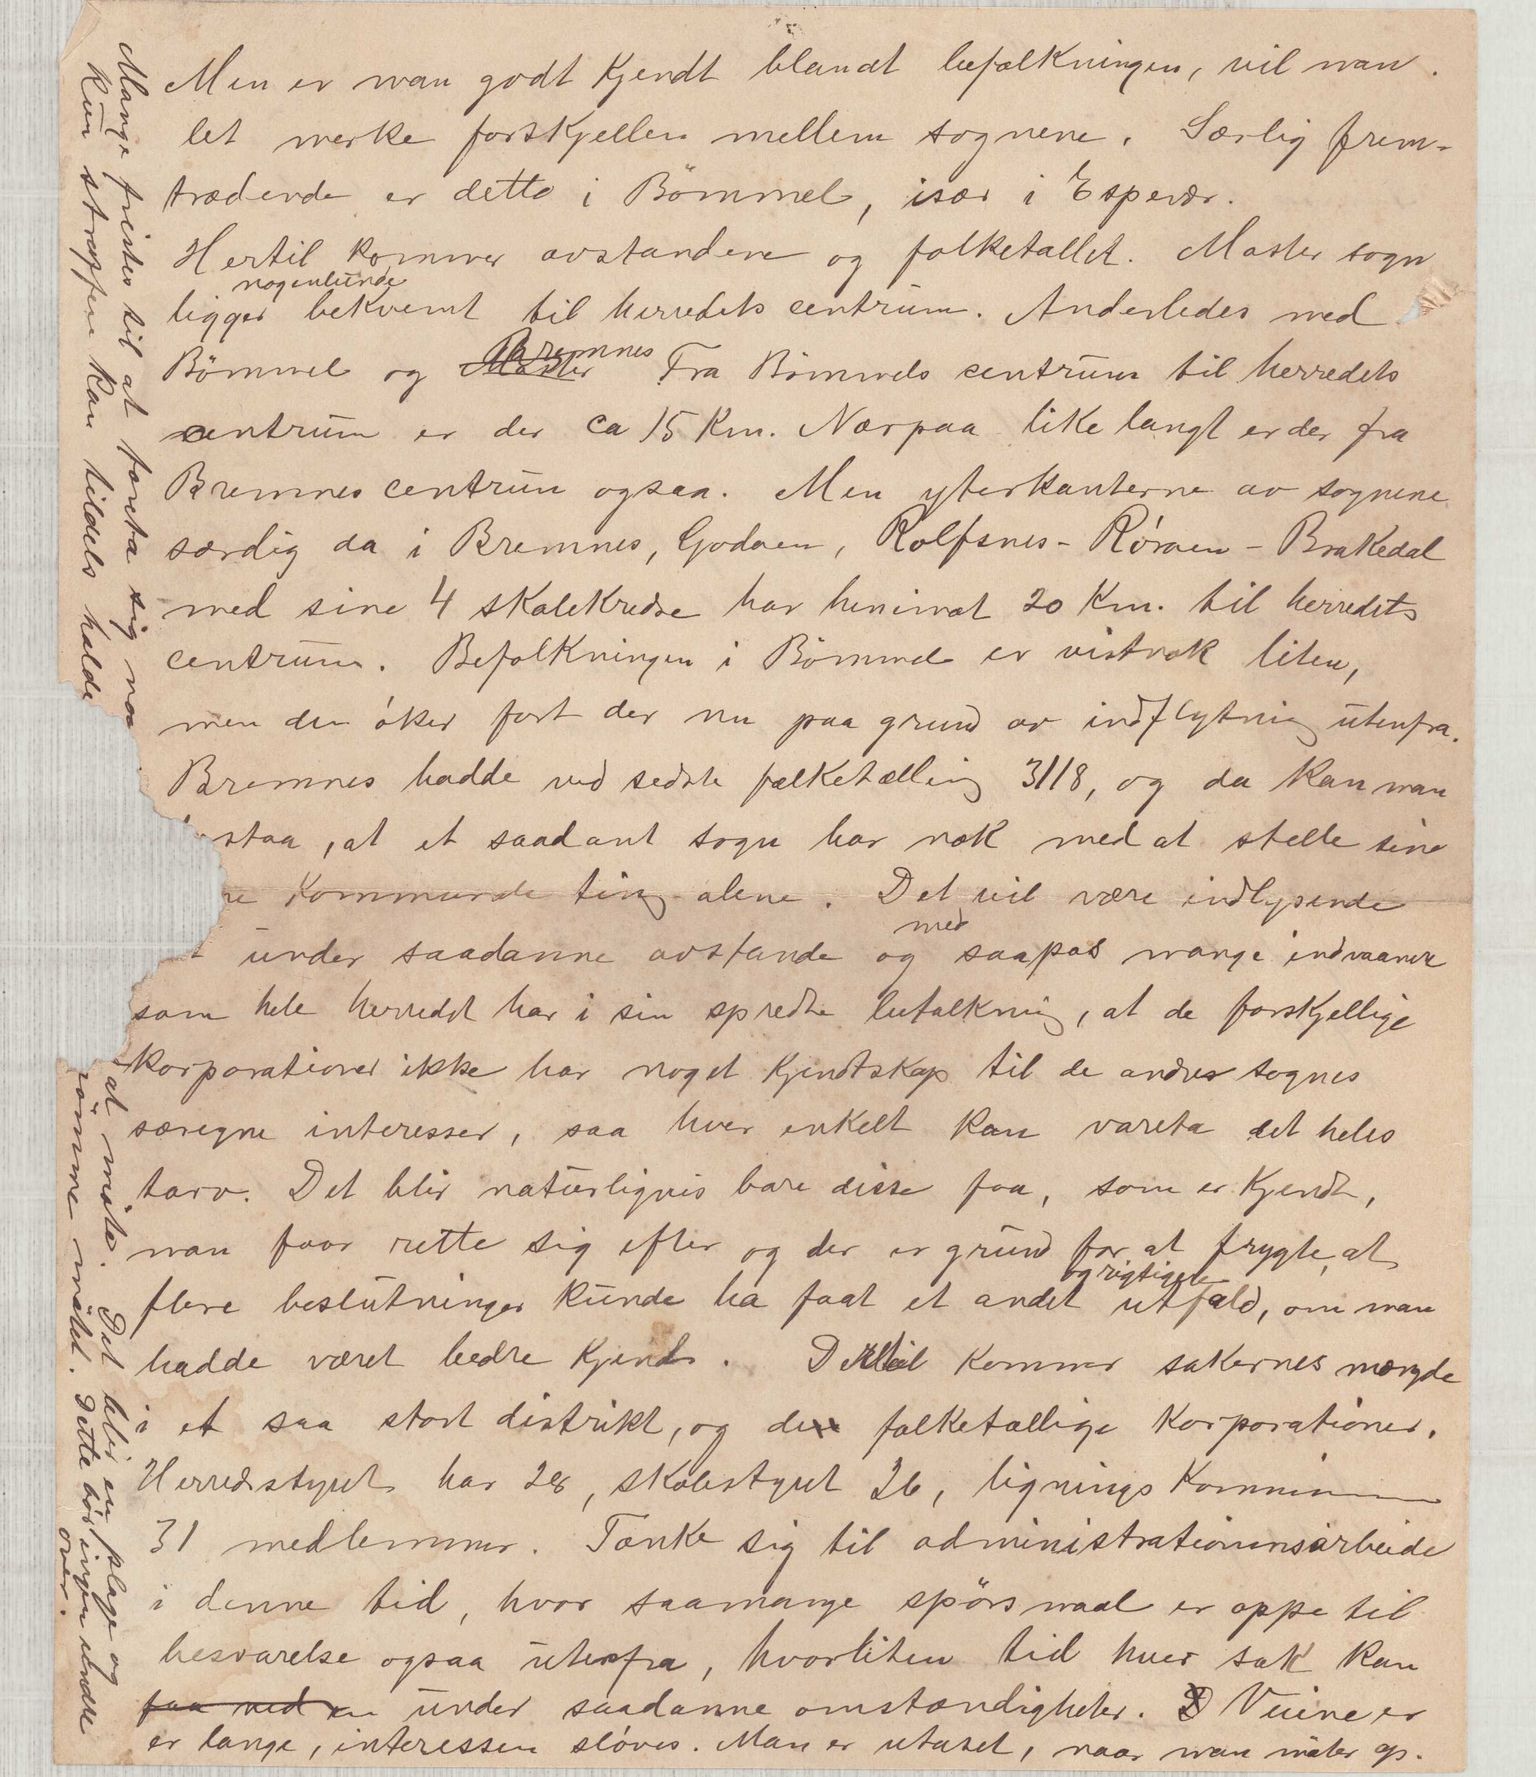 Men er man godt kjendt blandt befolkningen, vil man
let merke forskjellen mellem sognene. Særlig frem-
trædende er dette i Bömmel, især i Espevær.
Hertil kommer avstandene og folketallet. Moster sogn
nogenlunde
ligger bekvemt til herredets centrum. Anderledes med
Bremnes
Bömmel og Moster Fra Bömmels centrum til herredets
centrum er der ca 15 Km. Nærpaa like langt er der fra
Bremnes centrum ogsaa. Men yterkanterne av sognene
særdig da i Bremnes, Godøen, Rolfsnes - Röröen - Brakedal
med sine 4 skolekredse har henimot 20 Km. til herredets
centrum. Befolkningen i Bömmel er vistnok liten,
men den öker fort der nu paa grund av indflytning utenfra.
Bremnes hadde ved sedste folketælling 3118, og da kan man
staa, at et saadant sogn har nok med at stelle sine
re kommunale ting alene. Det vil være indlysende
med
under saadanne avstande og saapas mange indvaanere
som hele herredet har i sin spredte befolkning, at de forskjellige
korporationer ikke har noget kjendtskap til de andres sognes
særegne interesser, saa hver enkelt kan vareta det heles
tarv. Det blir naturligvis bare disse faa, som er kjendt,
man faar rette sig efter og der er grund for at frygte, at
og rigtigere
flere beslutninger kunde ha faat et andet utfald, om man
hadde været bedre kjendt. Dertil kommer sakernes mængde
i et saa stort distrikt, og de folketallige korporationer.
Herredsstyret har 28, skolestyret 26, ligningskommissionen
31 medlemmer. Tænke sig til administrationsarbeide
i denne tid, hvor saamange spörsmaal er oppe til
besvarelse ogsaa utenfra, hvorliten tid hver sak kan
faa ved en under saadanne omstændigheter. Veiene er
er lange, interessen slöves. Man er utaset, naar man möter op.
Mange fristes til at foreta sig noe
Kun straffen kan tildels holde
at möte. Det blir en plage og
sömme mötet. Dette bör ingen undre
over.